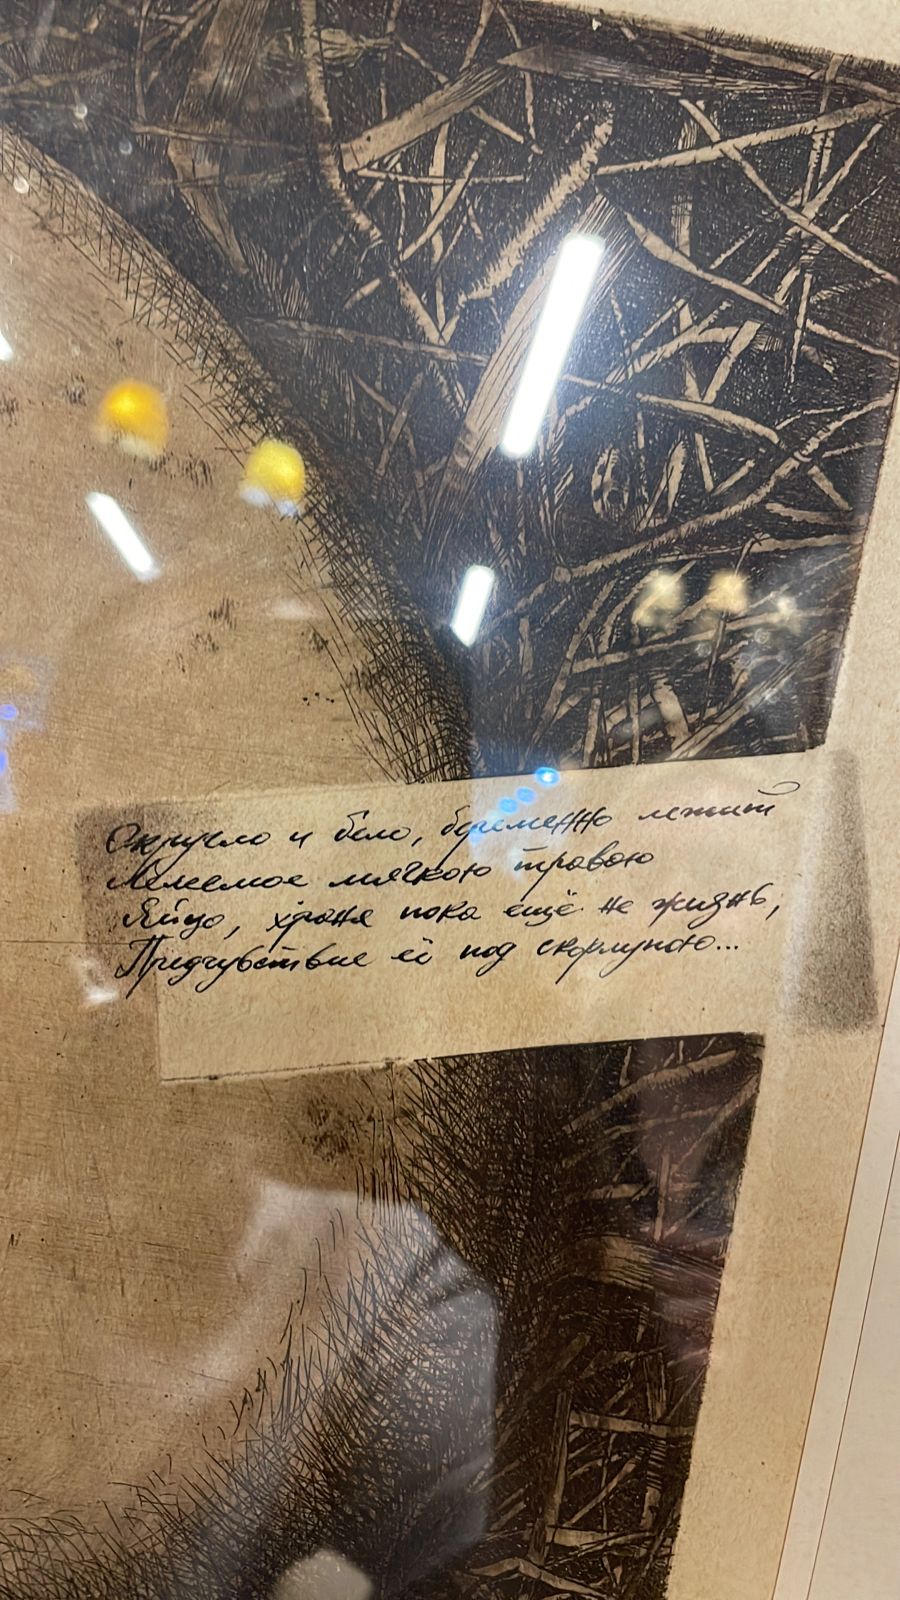 Округло и бело, беременно лежит
Лелемое мягкою травою
Яйцо, храня пока ещё не жизнь,
Предчувствие её под скорлупою...